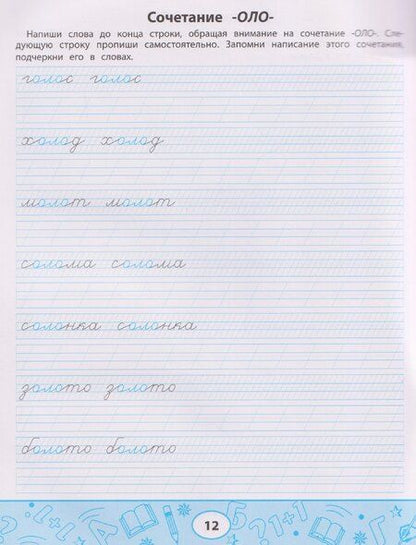 Сочетание -ОЛО-
Напиши слова до конца строки, обращая внимание на сочетание -ОЛО-. Сле-
дующую строку пропиши самостоятельно. Запомни написание этого сочетания,
подчеркни его в словах.
голос голос
холод холод
молот молот
солома солома
солонка солонка
золото золото
болото болото
12